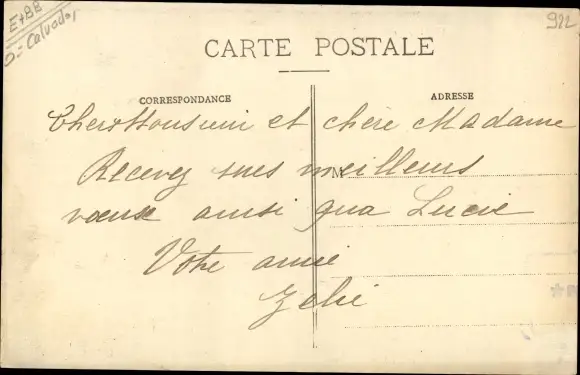 E+88
D= Calvados
922
CARTE POSTALE
CORRESPONDANCE
ADRESSE
Cher Monsieur et chère Madame
Recevez mes meilleurs
M
vœux ainsi qua Lucie
Votre amie
Zelie